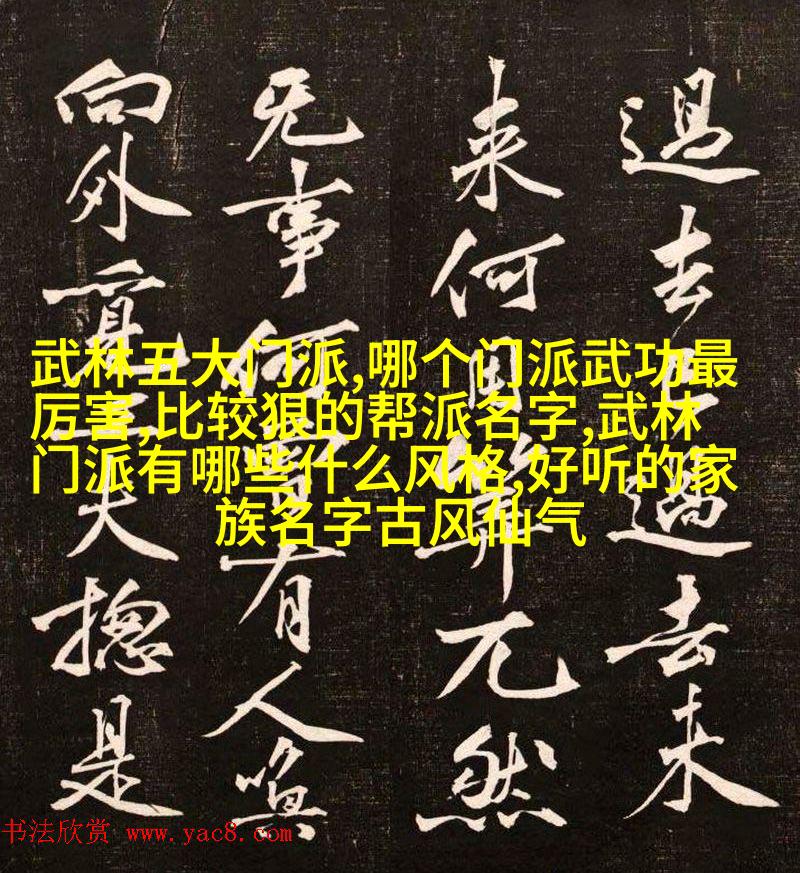 過去已過去未
来何用算兀然
无事何曾有人喚
向外覓工夫揔是
武林丑大门派,哪个门派武功最
厉害,比较狠的帮派名字,武林
门派有哪些什么风格,好听的家
族名字古风仙气
书法欣赏 www.yac8.com